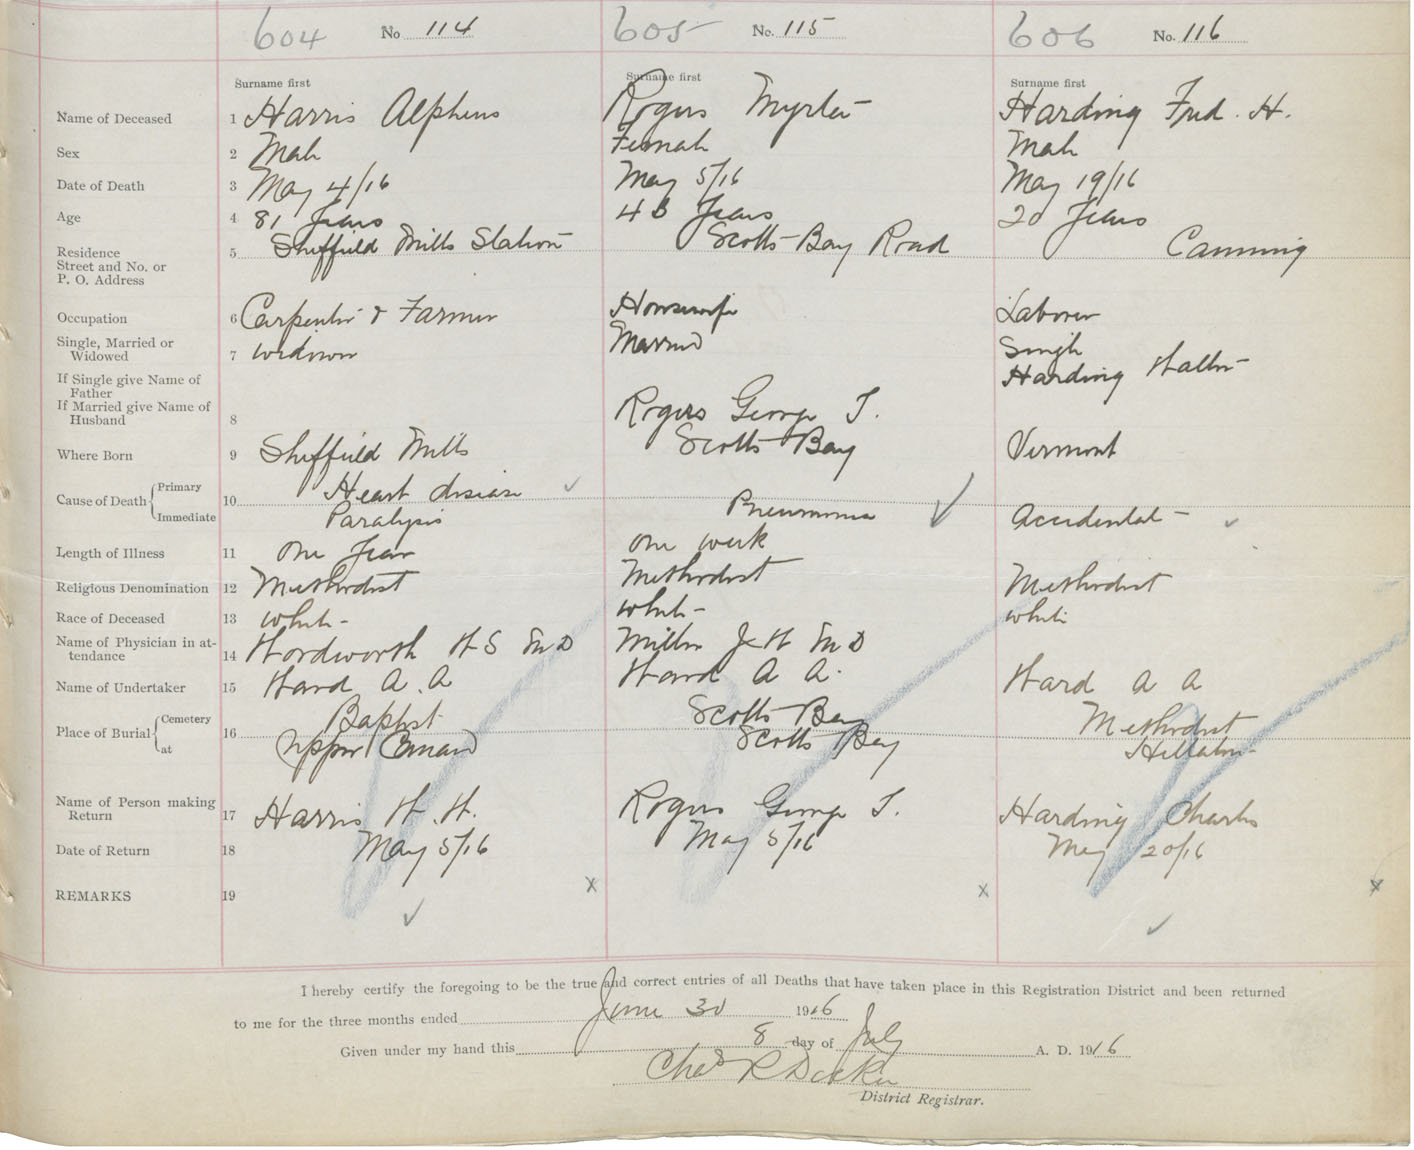 604 No 114 605 No. 115 606 No. 116
Surname first Surname first Surname first
Name of Deceased 1 Harris Alpheus Rogers Myrtle Harding Fred. H.
Sex 2 Male Female Male
Date of Death 3 May 4/16 May 5/16 May 19/16
Age 4 81 Years Years 20 Years
Residence
Street and No. or
P. O. Address
5 Sheffield Mills Station Scotts Bay Road Canning
Occupation 6 Carpenter & Farmer Housewife Laborer
Single, Married or
Widowed
7 widower Married Single
If Single give Name of
Father
Harding Walter
If Married give Name of
Husband
8 Rogers George T.
Where Born 9 Sheffield Mills Scotts Bay Vermont
Cause of Death { Primary
Immediate
10 Heart disease
Paralysis Pneumonia Accidental
Length of Illness 11 One Year One week
Religious Denomination 12 Methodist Methodist Methodist
Race of Deceased 13 white white white
Name of Physician in at-
tendance
14 Wordworth W S M D Miller J W M D
Name of Undertaker 15 Ward A. A Ward A A. Ward A A
Place of Burial { Cemetery
at
16 Baptist Scotts Bay Methodist
Upper Canard Scotts Bay Hillaton
Name of Person making
Return
17 Harris W. H. Rogers George T. Harding Charles
Date of Return 18 May 5/16 May 5/16 May 20/16
REMARKS 19 x x x
I hereby certify the foregoing to be the true and correct entries of all Deaths that have taken place in this Registration District and been returned
to me for the three months ended June 30 1916
Given under my hand this 8 day of July A. D. 1916
Chas R
District Registrar.